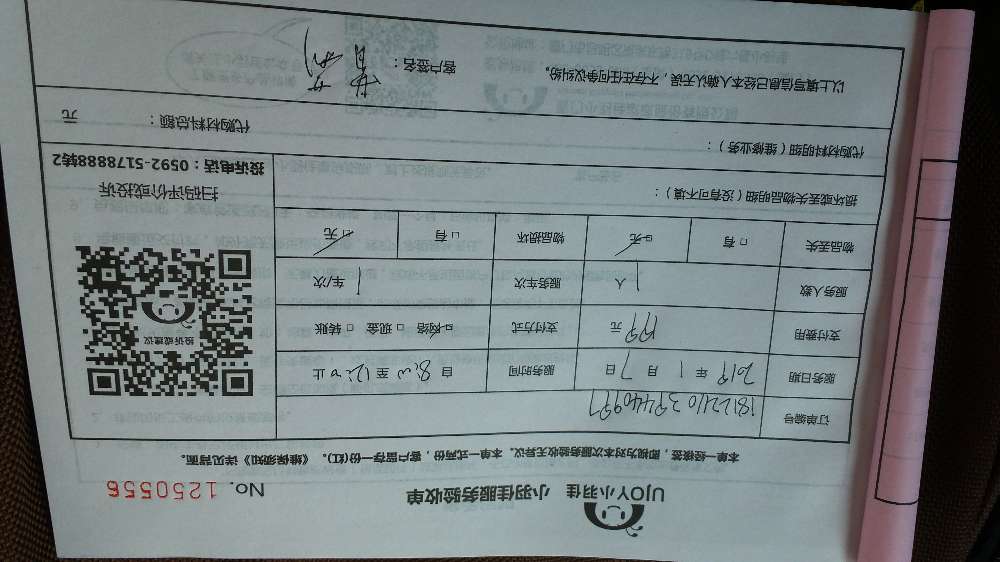 UJOY小羽佳 小羽佳服务验收单
No. 1250556
本单一经核签，即视为对本次服务验收无异议。本单一式两份，客户留存一份(红)。《维保须知》详见背面。
订单编号
服务日期 2019 年 1 月 7 日 服务时间 自 8:00 至 12:00 止
支付费用 元 支付方式 □ 网络 □ 现金 □ 转账
服务人数 1 人 服务车次 1 车/次
物品丢失 □ 有 □ 无 物品损坏 □ 有 □ 无
损坏或丢失物品明细（没有可不填）：
代购材料明细（维修业务）： 代购材料总额： 元
以上填写信息已经本人确认无误，不存在任何争议纠纷。 客户签名：
投诉或建议
扫码评价或投诉
投诉电话：0592-5178888转2